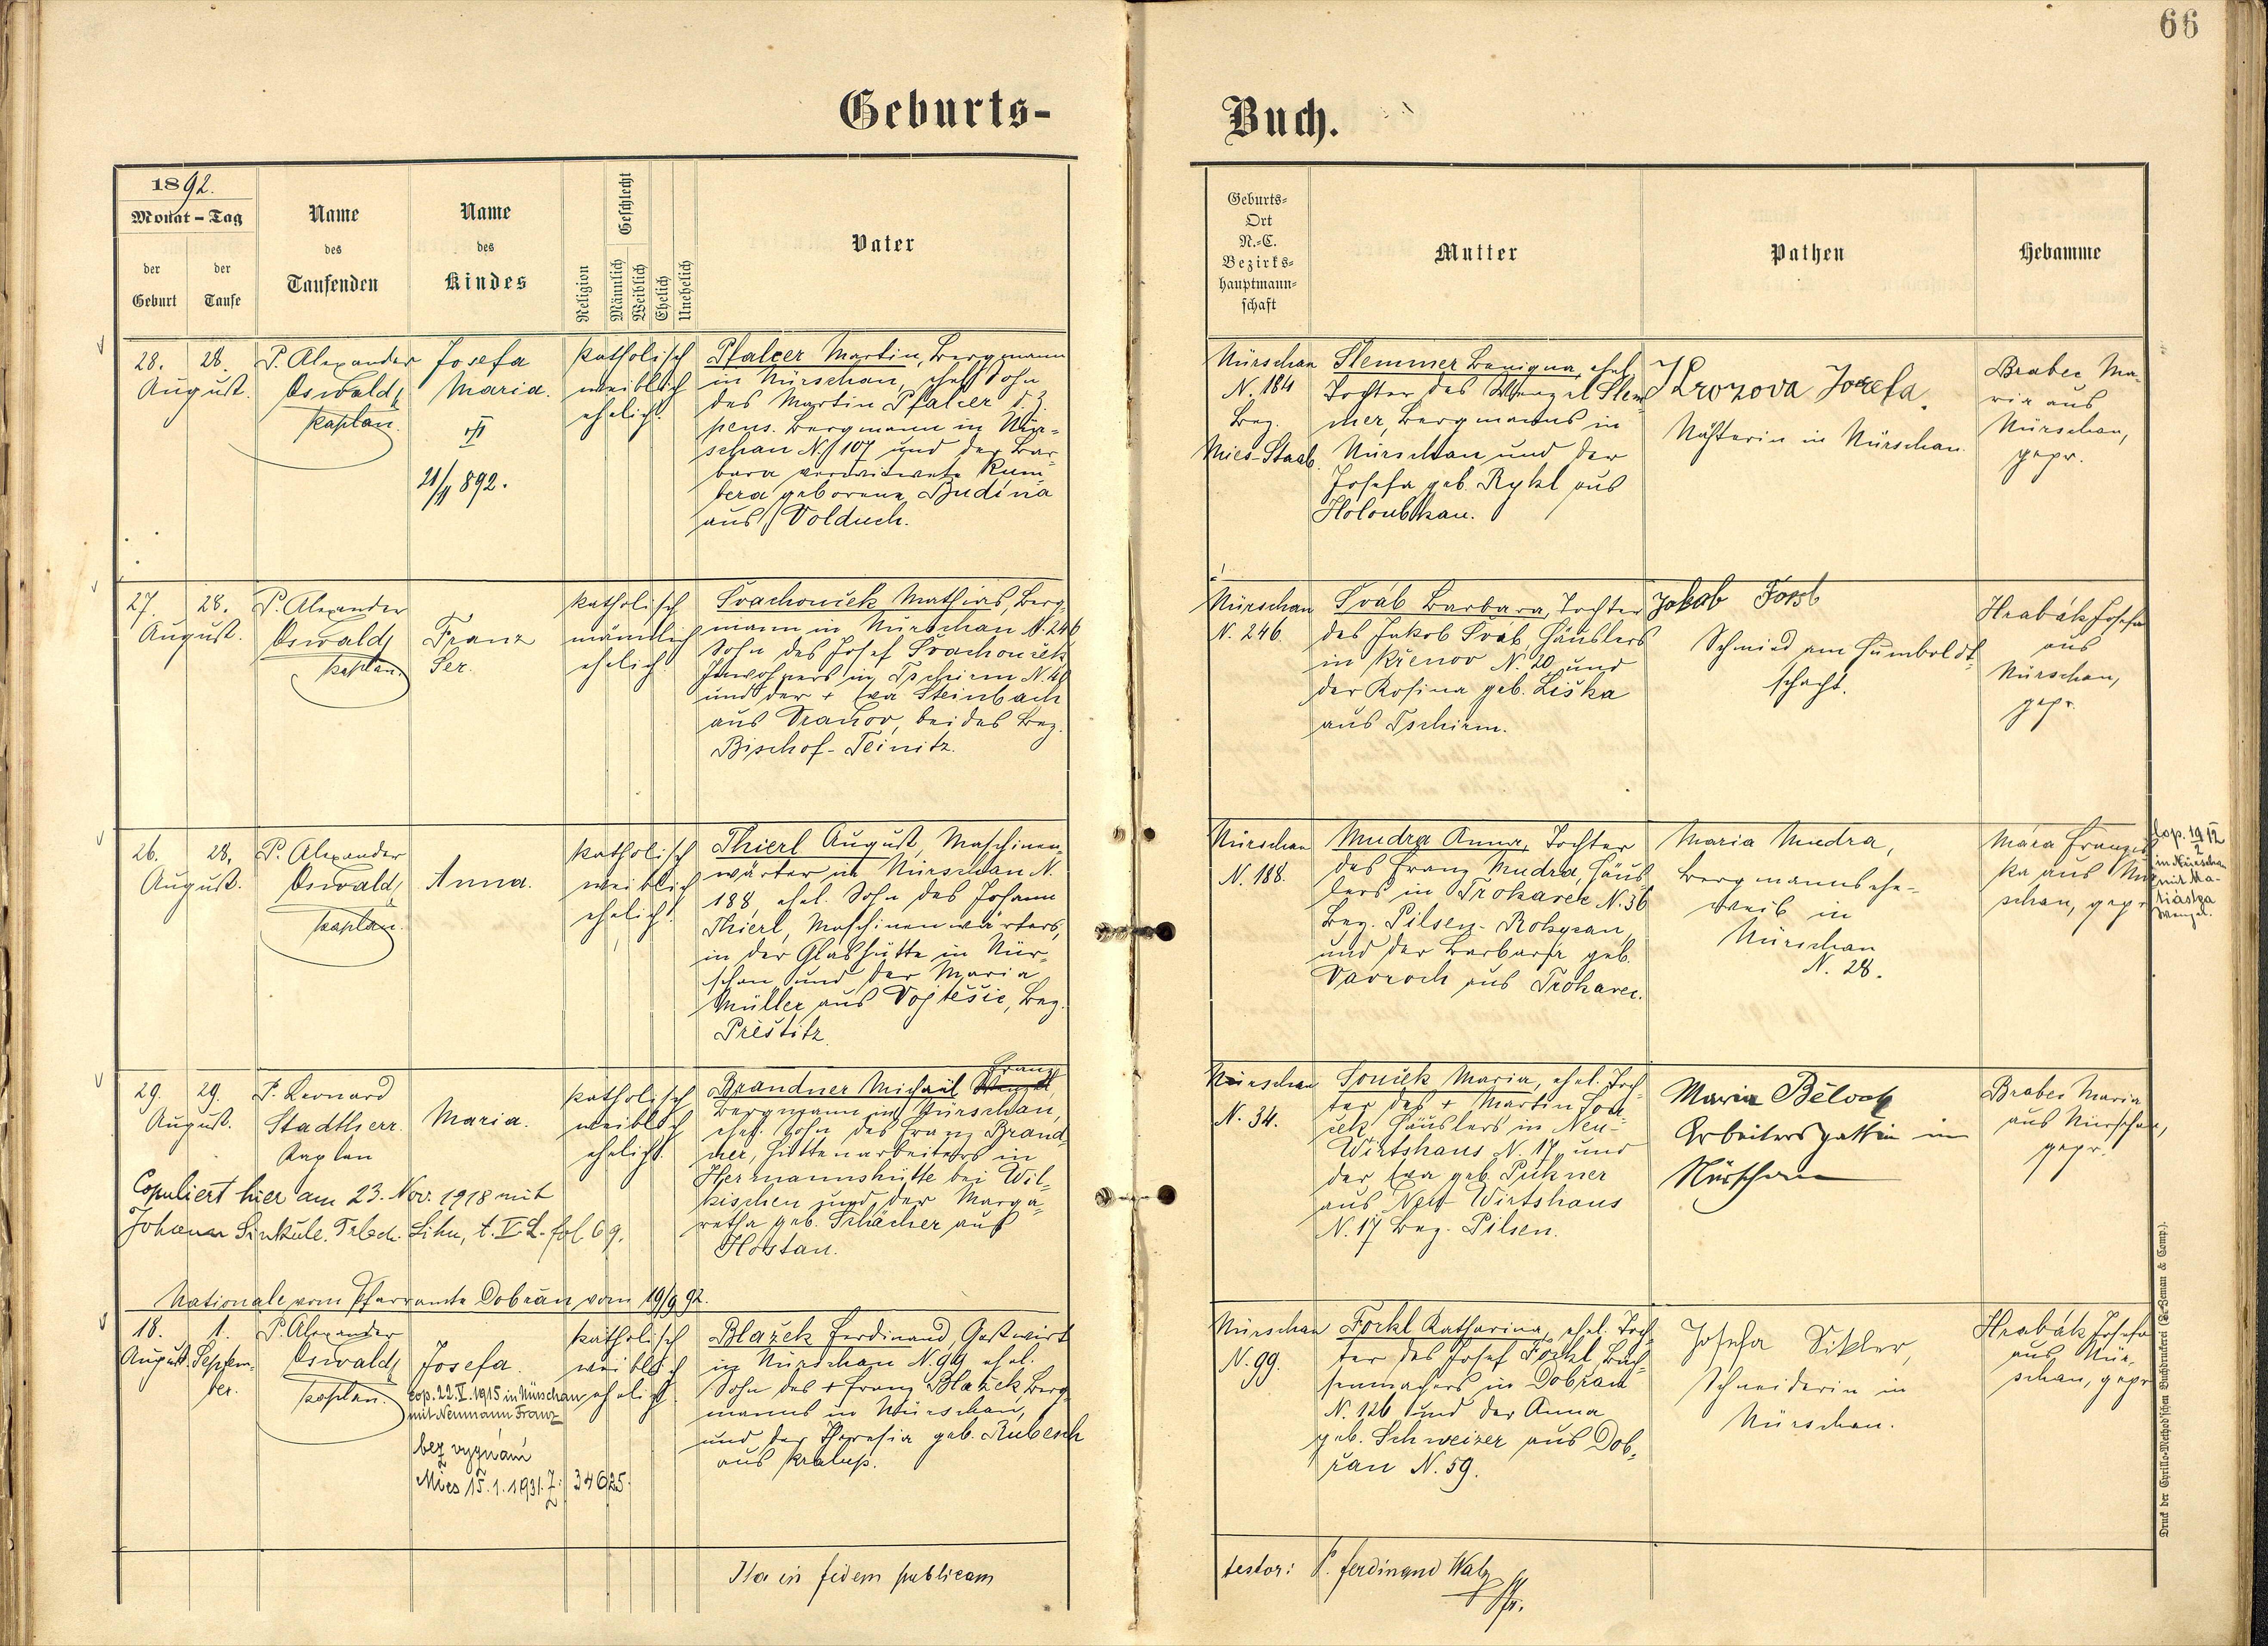 66
Geburts-
Buch.
1892.
Monat - Tag
der Geburt
der Taufe
Name des Taufenden
Name des Kindes
Religion
Geschlecht
Männlich
Weiblich
Ehelich
Unehelich
Vater
Geburts-
Ort
N.-C.
Bezirks-
hauptmann-
schaft
Mutter
Pathen
Hebamme
28.
August.
28.
P. Alexander
Oswald,
Kaplan.
Josefa
Maria.
21/11 892.
katholisch
weiblich
ehelich.
Pfalcer Martin, Bergmann
in Nürschan, ehel. Sohn
des Martin Pfalcer d. Z.
pens. Bergmann in Nür-
schan N. 107 und der Bar-
bara verwitwete Kum-
bera geborene Budína
aus Volduch.
Nürschan
N. 184
Bez.
Mies-Staab.
Slemmer Benigna, ehel.
Tochter des Wenzel Slem-
mer, Bergmanns in
Nürschan und der
Josefa geb. Rykl aus
Holoubkau.
Josefa.
Nähterin in Nürschan.
Brabec Ma-
ria aus
Nürschan,
gepr.
27.
August.
28.
P. Alexander
Oswald,
Kaplan.
Franz
Ser.
katholisch
männlich
ehelich.
Svachouček Mathias, Berg-
mann in Nürschan N. 246
Sohn des Josef Svachouček
Inwohners in Tschirm N. 40
und der + Eva Steinbach
aus Vranov, beides Bez.
Bischof-Teinitz.
Nürschan
N. 246.
Šváb Barbara, Tochter
des Jakob Šváb, Häuslers
in Křenov N. 20 und
der Rosina geb. Liška
aus Tschirm.
Jakob Forst
Schmied am Humboldt-
schacht.
Hrabák Josefa
aus
Nürschan,
gepr.
26.
August.
28.
P. Alexander
Oswald,
Kaplan.
Anna.
katholisch
weiblich
ehelich.
Thierl August, Maschinen-
wärter in Nürschan N.
188, ehel. Sohn des Johann
Thierl, Maschinenwärters,
in der Glashütte in Nür-
schan und der Maria
Müller aus Vojtěšic, Bez.
Přeštitz.
Nürschan
N. 188.
Mudra Anna, Tochter
des Franz Mudra, Häus-
lers in Trokavec N. 36
Bez. Pilsen-Rokycan,
und der Barbara geb.
Vavroch aus Trokavec.
Maria Mudra,
Bergmannsehe-
weib in
Nürschan
N. 28.
Mára Franzis-
ka aus Nür-
schan, gepr.
Cop. 19 12/2
in Nürschan
mit Ma-
tiástza
Wenzel.
29.
August.
29.
P. Leonard
Stadtherr
Kaplan
Maria.
katholisch
weiblich
ehelich.
Brandner Michael Franz,
Bergmann in Nürschan,
ehel. Sohn des Franz Brand-
ner, Hüttenarbeiters in
Hermannshütte bei Wil-
kischen und der Marga-
retha geb. Schächer aus
Hostau.
Copuliert hier am 23. Nov. 1918 mit
Johann Sinkule. Lihn, t. V L. fol 69.
Nürschan
N. 34.
Souček Maria, ehel. Toch-
ter des + Martin Sou-
ček Häuslers in Neu-
Wirtshaus N. 17 und
der Eva geb. Pukner
aus Neu Wirtshaus
N. 17 Bez. Pilsen.
Maria Bělock
Arbeitersgattin in
Nürschan
Brabec Maria
aus Nürschan,
gepr.
Nationale vom Pfarramte Dobřan vom 19/9 92.
18.
August.
1.
Septem-
ber.
P. Alexander
Oswald,
Kaplan.
Josefa.
cop. 22. V. 1915 in Nürschan
mit Neumann Franz
bez vyznání
Mies 15.1.1931. Z: 34625.
katholisch
weiblich
ehelich.
Blažek Ferdinand, Gastwirt
in Nürschan N. 99, ehel.
Sohn des + Franz Blažek Berg-
manns in Nürschan,
und der Theresia geb. Rubesch
aus Kralup.
Nürschan
N. 99.
Forkl Katharina, ehel. Toch-
ter des Josef Forkl, Büch-
senmachers in Dobřan
N. 126 und der Anna
geb. Schweizer aus Dob-
řan N. 59.
Josefa Sikler,
Schneiderin in
Nürschan.
Hrabák Josefa
aus Nür-
schan, gepr.
Ita in fidem publicam
testor: P. Ferdinand Walz
Druck der Cyrillo-Method'schen Buchdruckerei (G. Zeman & Comp.).